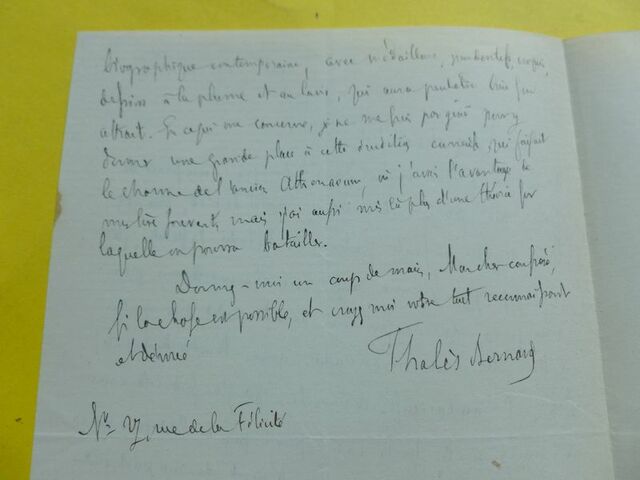 biographique contemporaine, avec médaillons, croquis,
dessins à la plume et au lavis, qui aura peut-être bien son
attrait. En ce qui me concerne, je ne me suis pas gêné pour y
donner une grande place à cette érudition curieuse qui faisait
le charme de l'ancien Athenaeum, où j'avais l'avantage de
vous lire souvent, mais j'ai aussi mis là plus d'une théorie sur
laquelle on pourra batailler.
Donnez-moi un coup de main, Mon cher confrère,
si la chose est possible, et croyez moi votre tout reconnaissant
et dévoué
Thalès Bernard
No 27, rue de la Félicité